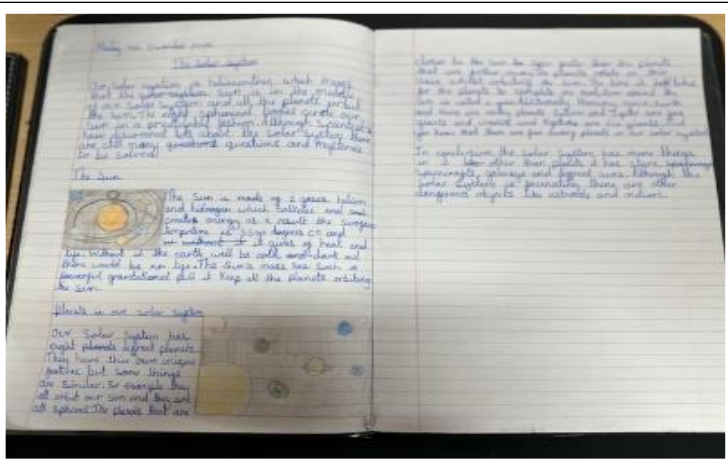 The Solar System
Our Solar system is heliocentric, which means
that the solar system Sun is in the middle
of our Solar System and all the planets orbit
the Sun. The eight spherical bodies circle our
Sun in a pattern. Although scientists
have learned lots about the solar system there
are still many questions questions and mysteries
to be solved.
The Sun
The Sun is made of 2 gases helium
and hidrogen which collide and
create energy as a result the surface
temperture is 5,500 degrees C° and
it gives of heat and
life. Without it the earth will be cold and dark and
there would be no life. The Sun's mass has such a
powerful gravitational pull it keep all the planets orbiting
the Sun.
planets in our solar system
Our Solar System has
eight planets
They have their own unique
features but some things
are similar. For example they
all orbit our sun and they are
all spherical. The planets that are
closer to the Sun are than the planets
that are further away. The planets rotate on their
axis whilst orbiting the sun. The time it
for the planets to complete an around the
sun is called a Mercury, venus, Earth
and mars are planets. Saturn and Jupiter are gas
giants and uranus and neptune are
you now that there are five dwarf planets in our solar system
In conclusion the solar system has more things
in it other than planets it has stars
spacecrafts, galaxys and Although the
Solar System is fascinating there are other
dangerous objects like asteroids and meteors.